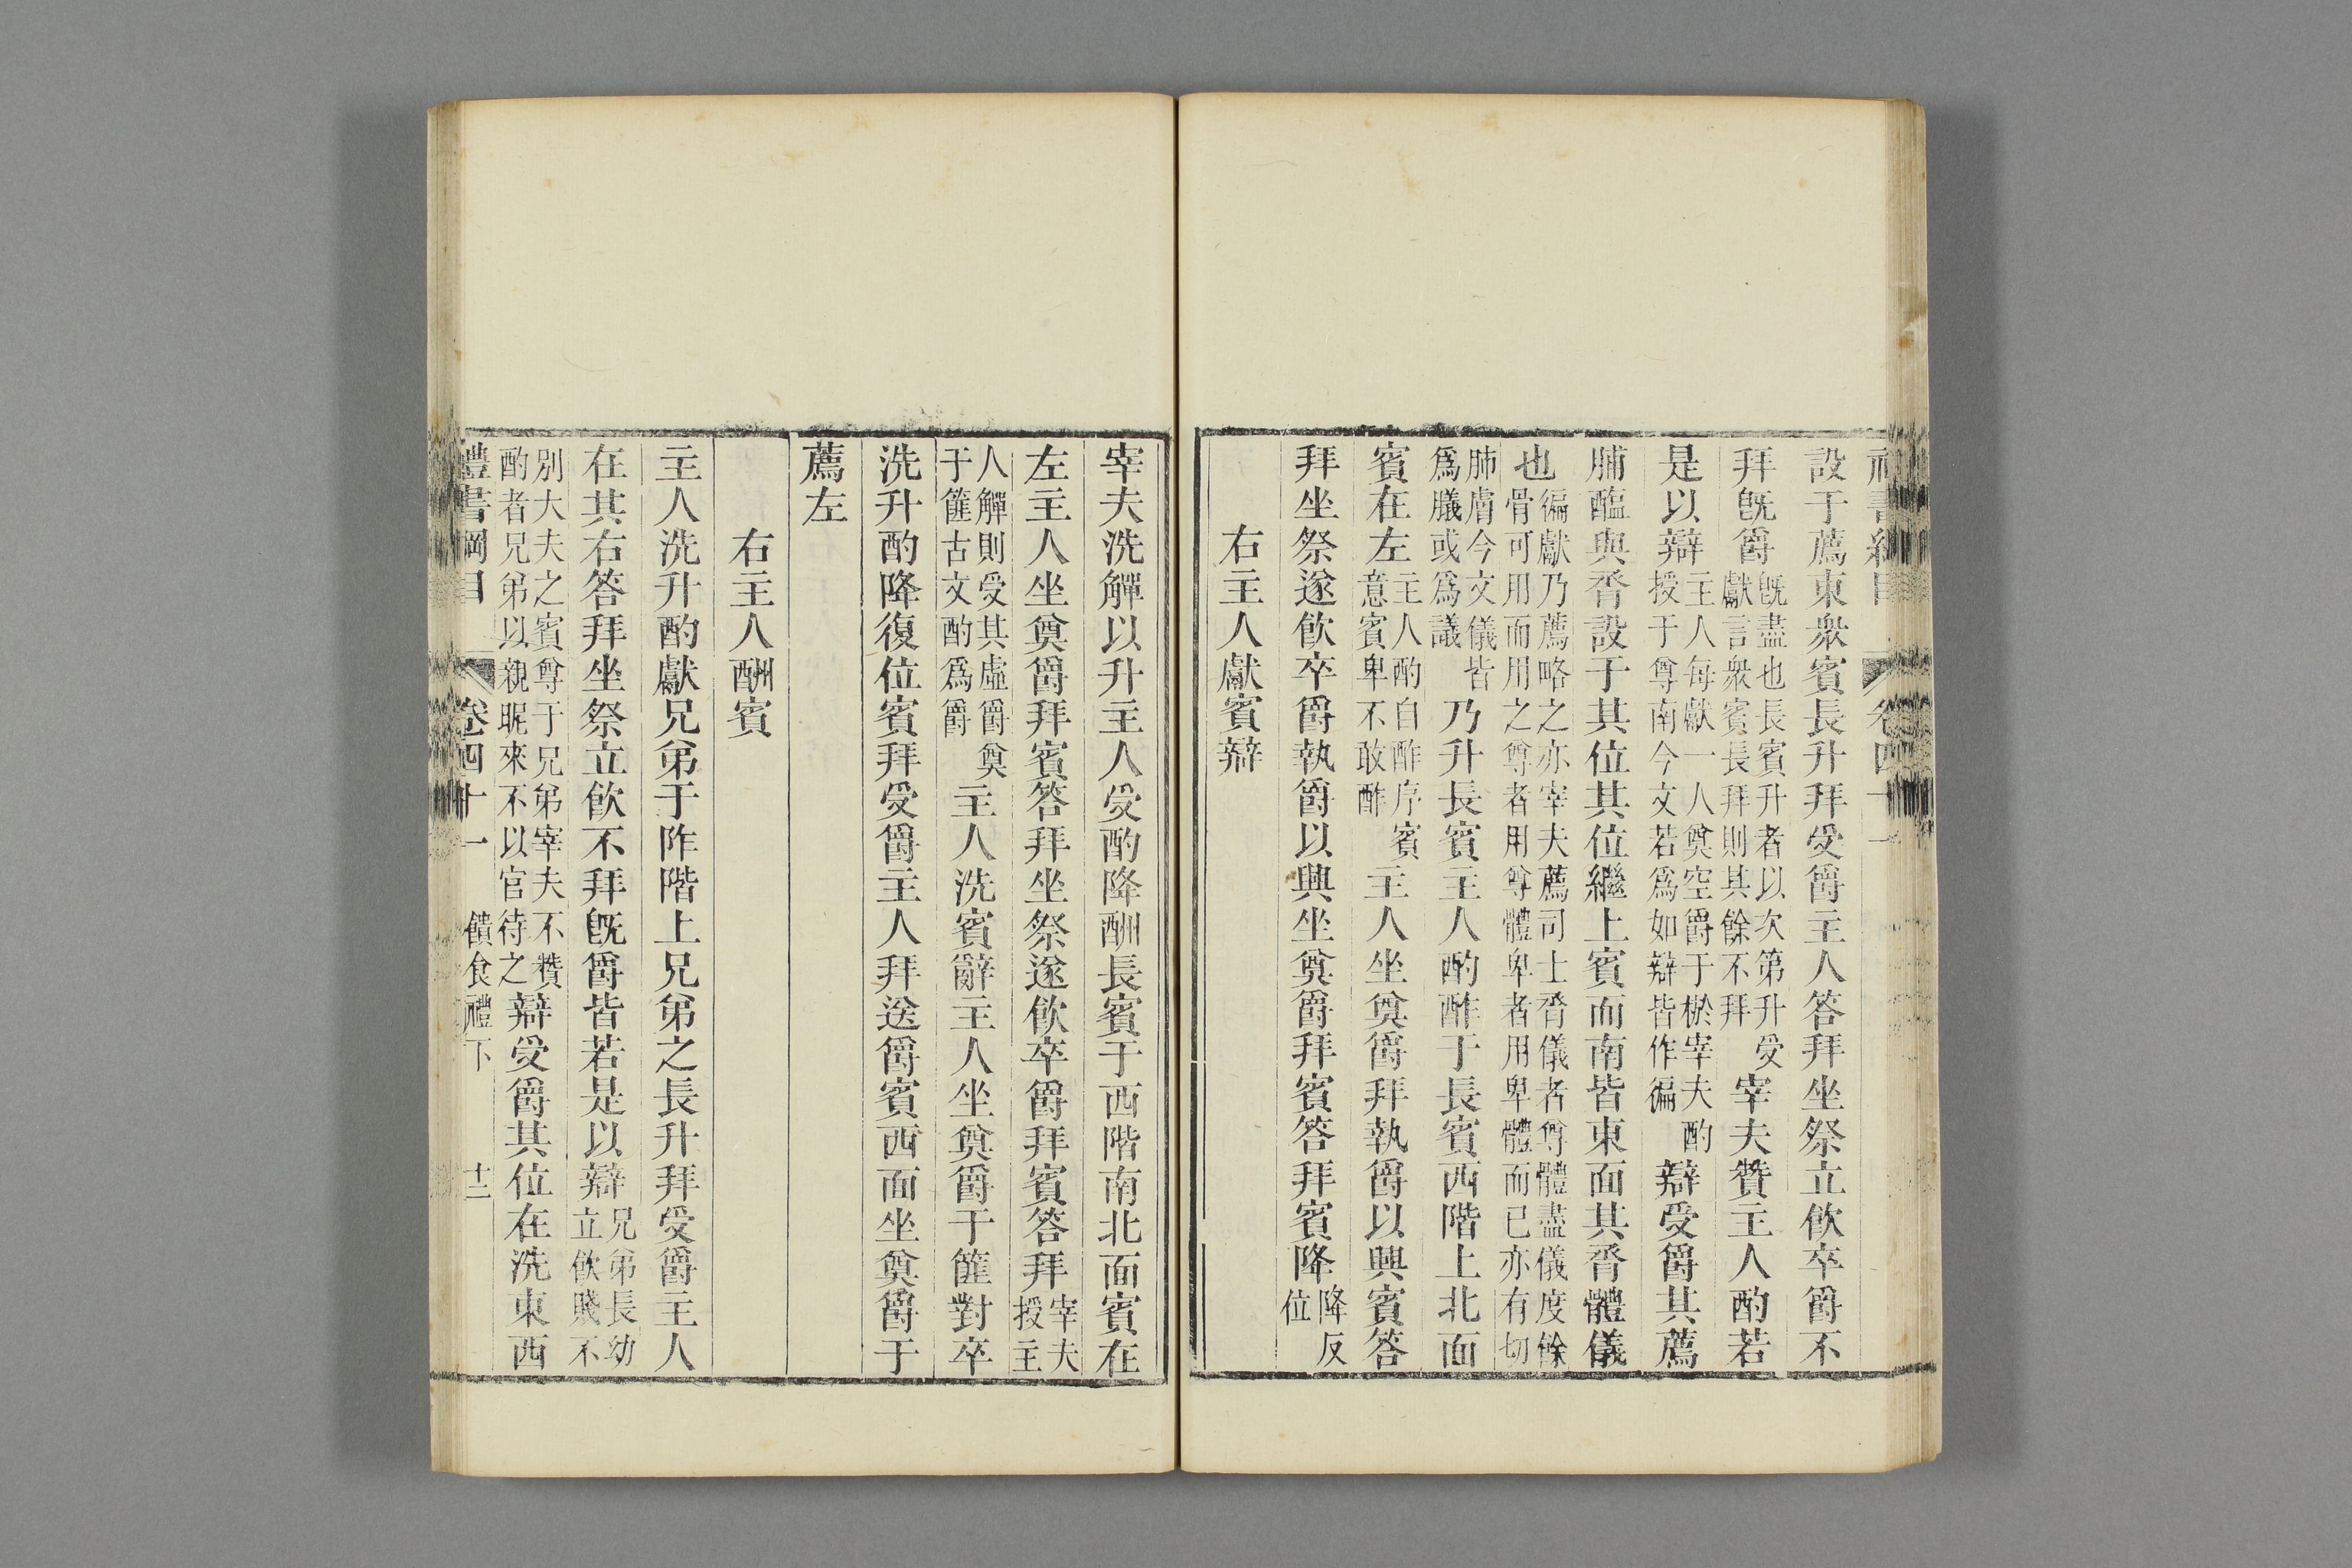 設于薦東衆賓長升拜受爵主人答拜坐祭立飮卒爵不
拜旣爵旣盡也長賓升者以次第升受獻言衆賓長拜則其餘不拜宰夫贊主人酌若
是以辯主人每獻一人奠空爵于棜宰夫酌授于尊南今文若爲如辯皆作徧辯受爵其薦
脯醢與脀設于其位其位繼上賓而南皆東面其脀體儀
也徧獻乃薦略之亦宰夫薦司士脀儀者尊體盡儀度餘骨可用而用之尊者用尊體卑者用卑體而已亦有切
肺膚今文儀皆爲䑄或爲議乃升長賓主人酌酢于長賓西階上北面
賓在左主人酌自酢序賓意賓卑不敢酢主人坐奠爵拜執爵以興賓答
拜坐祭遂飮卒爵執爵以興坐奠爵拜賓答拜賓降降反位
右主人獻賓辯
宰夫洗觶以升主人受酌降酬長賓于西階南北面賓在
左主人坐奠爵拜賓答拜坐祭遂飮卒爵拜賓答拜宰夫授主
人觶則受其虛爵奠于篚古文酌爲爵主人洗賓辭主人坐奠爵于篚對卒
洗升酌降復位賓拜受爵主人拜送爵賓西面坐奠爵于
薦左
右主人酬賓
主人洗升酌獻兄弟于阼階上兄弟之長升拜受爵主人
在其右答拜坐祭立飮不拜旣爵皆若是以辯兄弟長幼立飮賤不
別大夫之賓尊于兄弟宰夫不贊酌者兄弟以親昵來不以官待之辯受爵其位在洗東西
禮書綱目 卷四十一 饋食禮下 十三